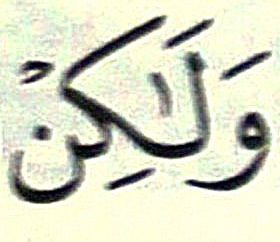 وَلَٰكِنْ